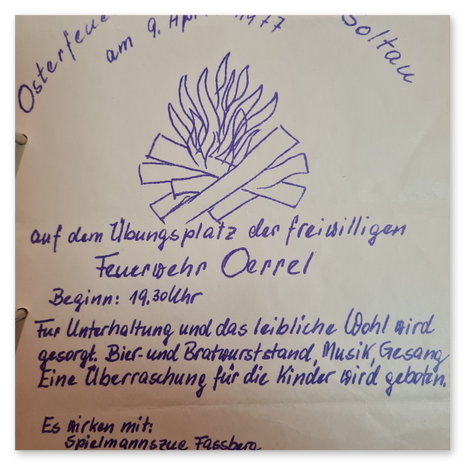 Osterfeuer
am 9. April 1977
Soltau
auf dem Übungsplatz der freiwilligen
Feuerwehr Oerrel
Beginn: 19.30 Uhr
Für Unterhaltung und das leibliche Wohl wird
gesorgt. Bier- und Bratwurststand, Musik, Gesang
Eine Überraschung für die Kinder wird geboten.
Es wirken mit:
Spielmannszug Fassberg